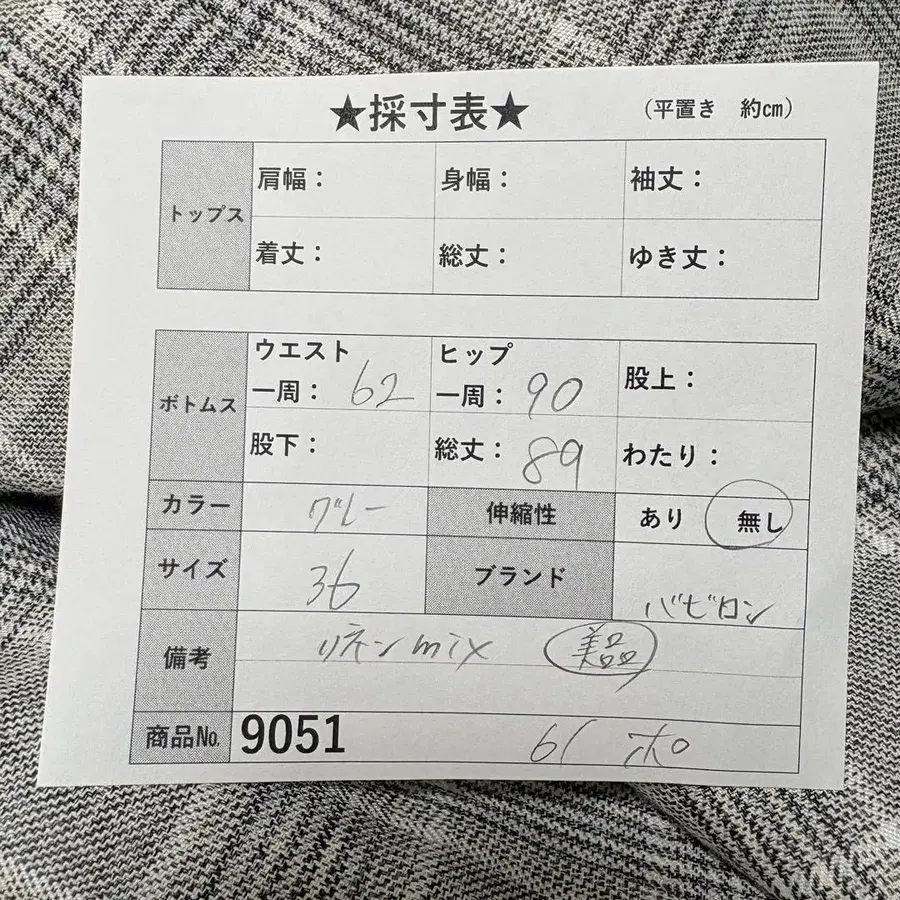 ★採寸表★ (平置き 約cm)
トップス
肩幅： 身幅： 袖丈：
着丈： 総丈： ゆき丈：
ボトムス
ウエスト一周：62 ヒップ一周：90 股上：
股下： 総丈：89 わたり：
カラー グレー 伸縮性 あり 無し
サイズ 36 ブランド バビロン
備考 リネンmix 美品
商品No. 9051